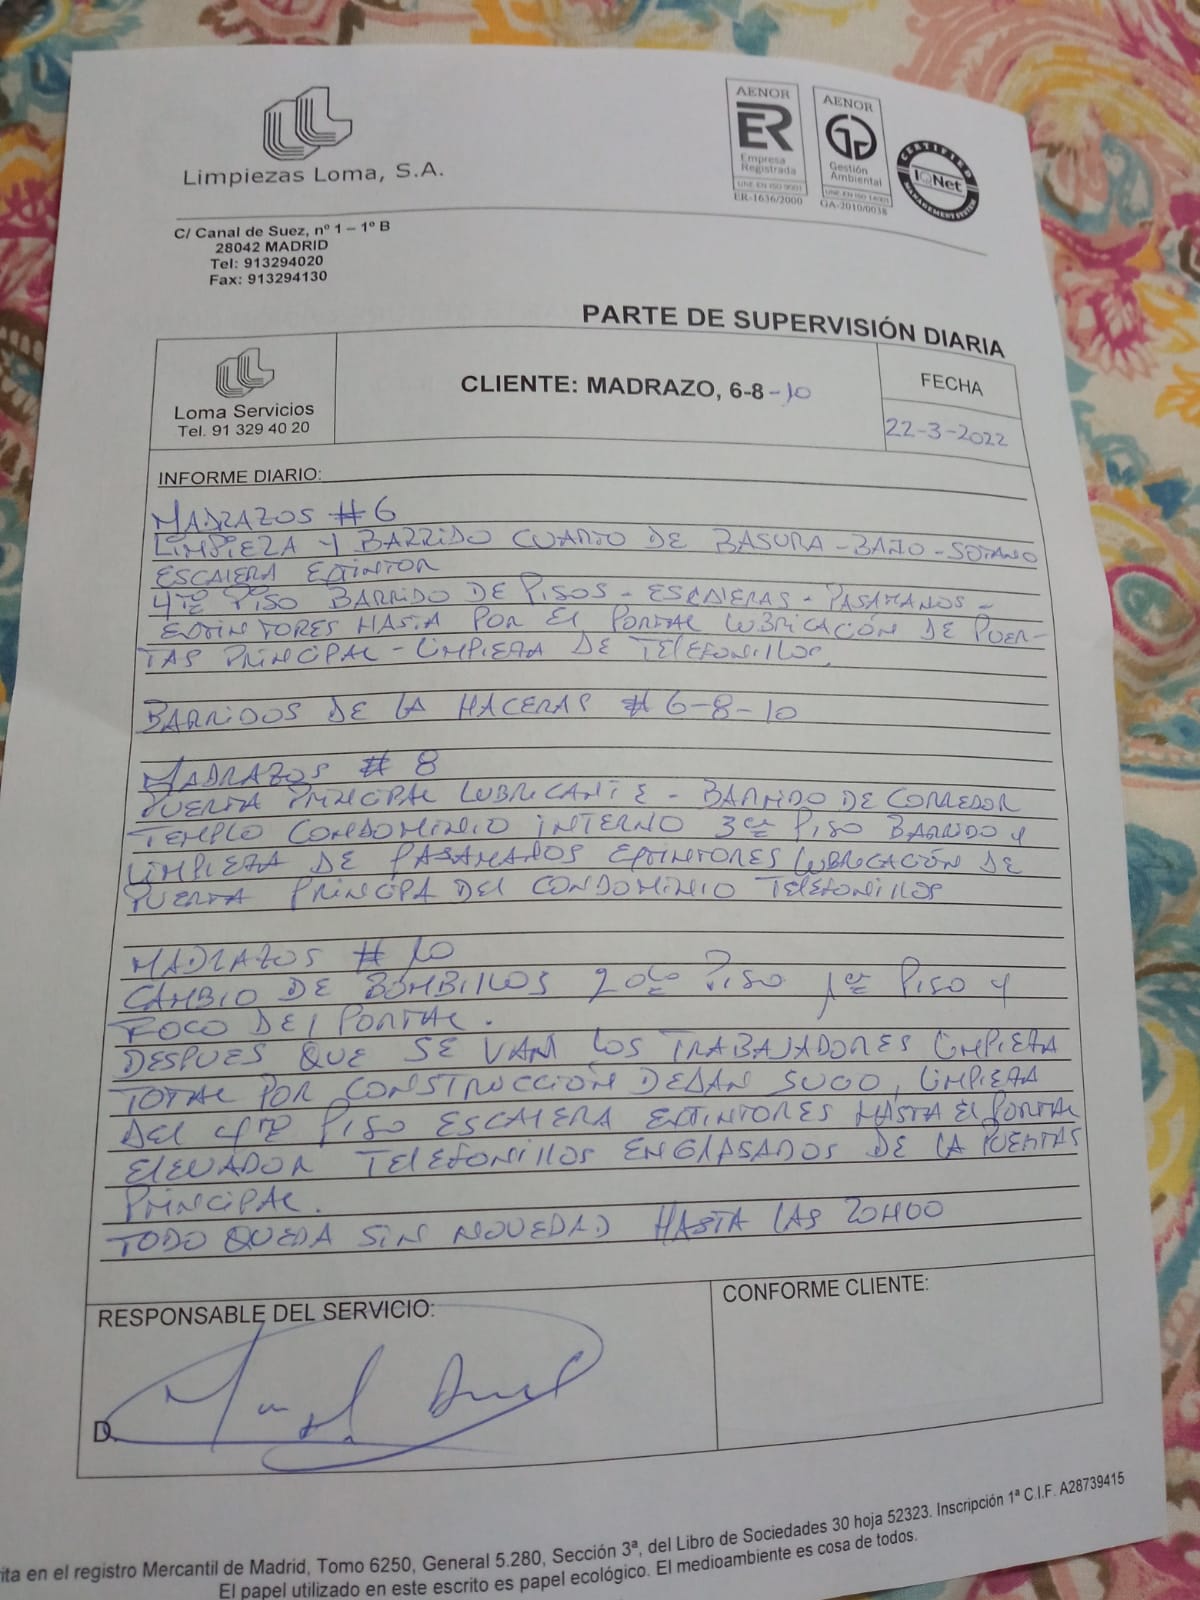 Limpiezas Loma, S.A.
AENOR
ER
Empresa
Registrada
UNE-EN ISO 9001
ER-1636/2000
AENOR
Gestión
Ambiental
UNE-EN ISO 14001
GA-2010/0038
CERTIFIED
IQNet
MANAGEMENT SYSTEM
C/ Canal de Suez, nº 1 – 1º B
28042 MADRID
Tel: 913294020
Fax: 913294130
PARTE DE SUPERVISIÓN DIARIA
Loma Servicios
Tel. 91 329 40 20
CLIENTE: MADRAZO, 6-8-10
FECHA
22-3-2022
INFORME DIARIO:
MADRAZOS #6
LIMPIEZA Y BARRIDO CUARTO DE BASURA-BAÑO-SOTANO
ESCALERA EXTINTOR
4TO PISO BARRIDO DE PISOS - ESCALERAS - PASAMANOS -
EXTINTORES HASTA POR El PORTAL LUBRICACIÓN DE PUER-
TAS PRINCIPAL - LIMPIEZA DE TELEFONILLOS
BARRIDOS DE LA HACERAS # 6-8-10
MADRAZOS # 8
PUERTA PRINCIPAL LUBRICANTE - BARRIDO DE CORREDOR
TEMPLO CONDOMINIO INTERNO 3er PISO BARRIDO Y
LIMPIEZA DE PASAMANOS EXTINTORES LUBRICACIÓN DE
PUERTA PRINCIPA DEL CONDOMINIO TELEFONILLOS
MADRAZOS # 10
CAMBIO DE BOMBILLOS 2do PISO 1er PISO Y
FOCO DEl PORTAL.
DESPUES QUE SE VAN LOS TRABAJADORES LIMPIEZA
TOTAL POR CONSTRUCCIÓN DEJAN SUCIO, LIMPIEZA
DEl 4TO PISO ESCALERA EXTINTORES HASTA El PORTAL
ELEVADOR TELEFONILLOS ENGRASADOS DE LA PUERTAS
PRINCIPAL.
TODO QUEDA SIN NOVEDAD HASTA LAS 20H00
RESPONSABLE DEL SERVICIO:
CONFORME CLIENTE:
D.
ita en el registro Mercantil de Madrid, Tomo 6250, General 5.280, Sección 3ª, del Libro de Sociedades 30 hoja 52323. Inscripción 1ª C.I.F. A28739415
El papel utilizado en este escrito es papel ecológico. El medioambiente es cosa de todos.